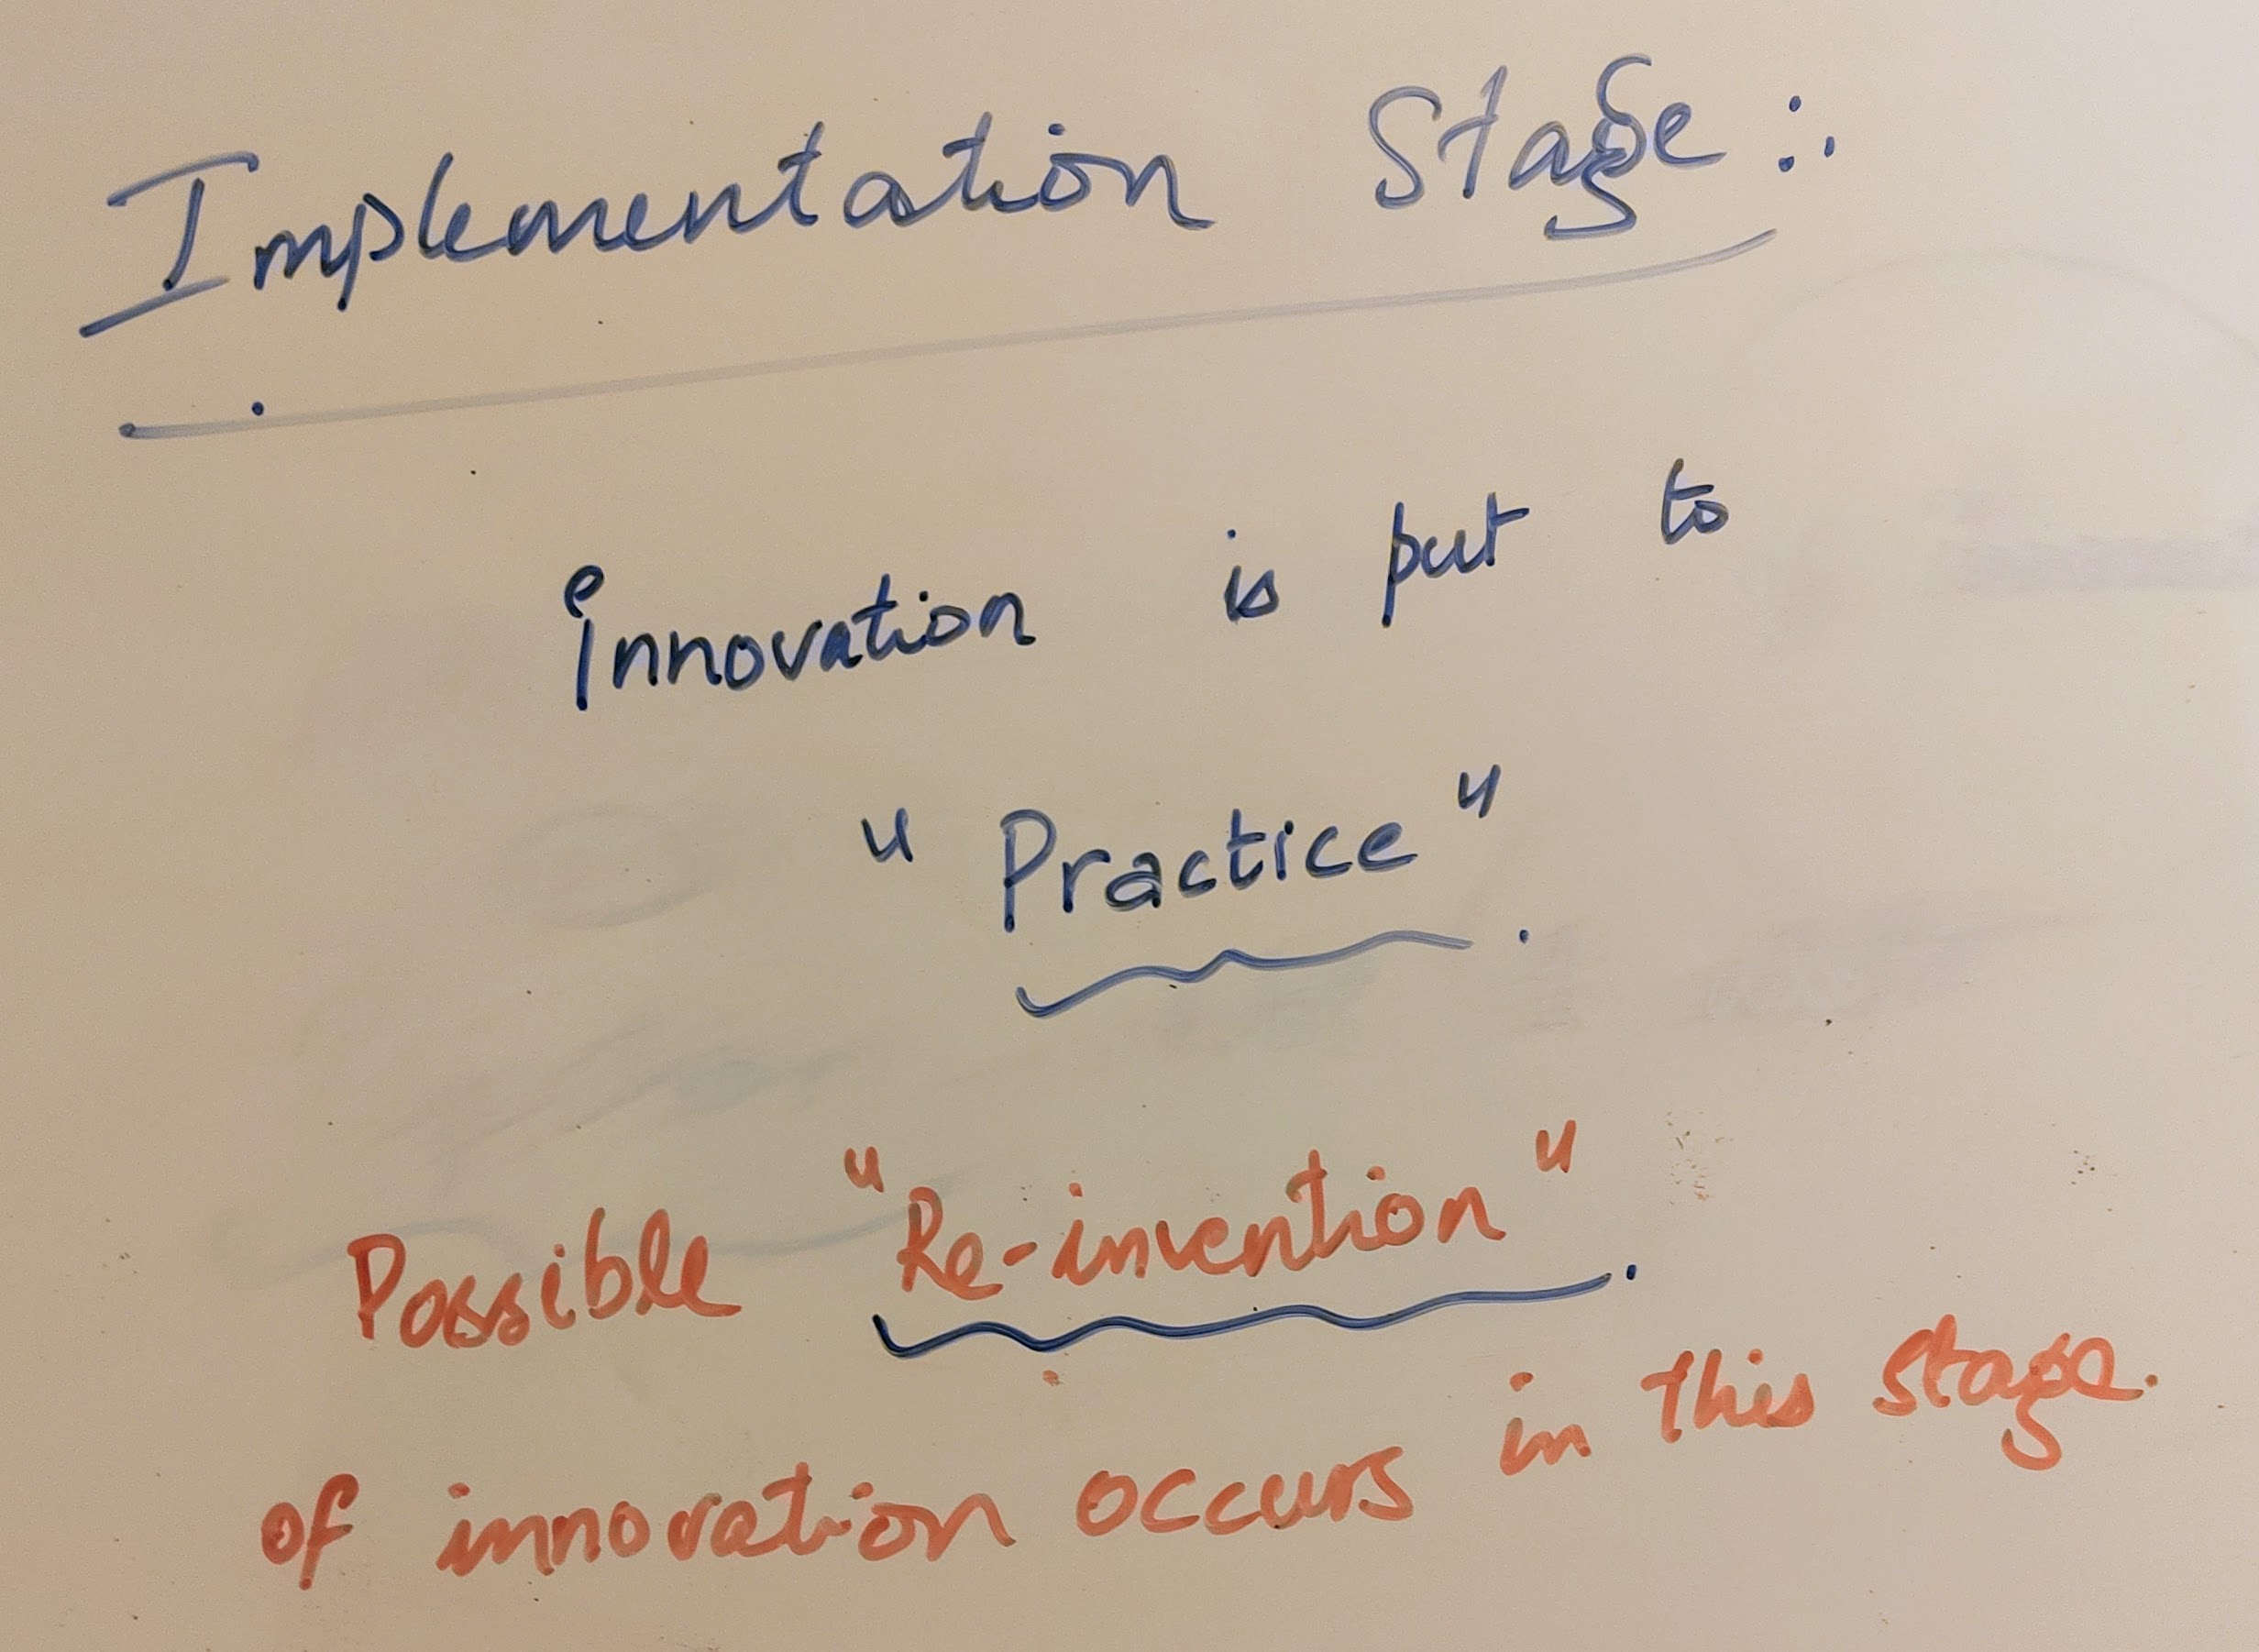 Implementation Stage :.
Innovation is put to
"Practice".
Possible "Re-invention".
of innovation occurs in this stage.